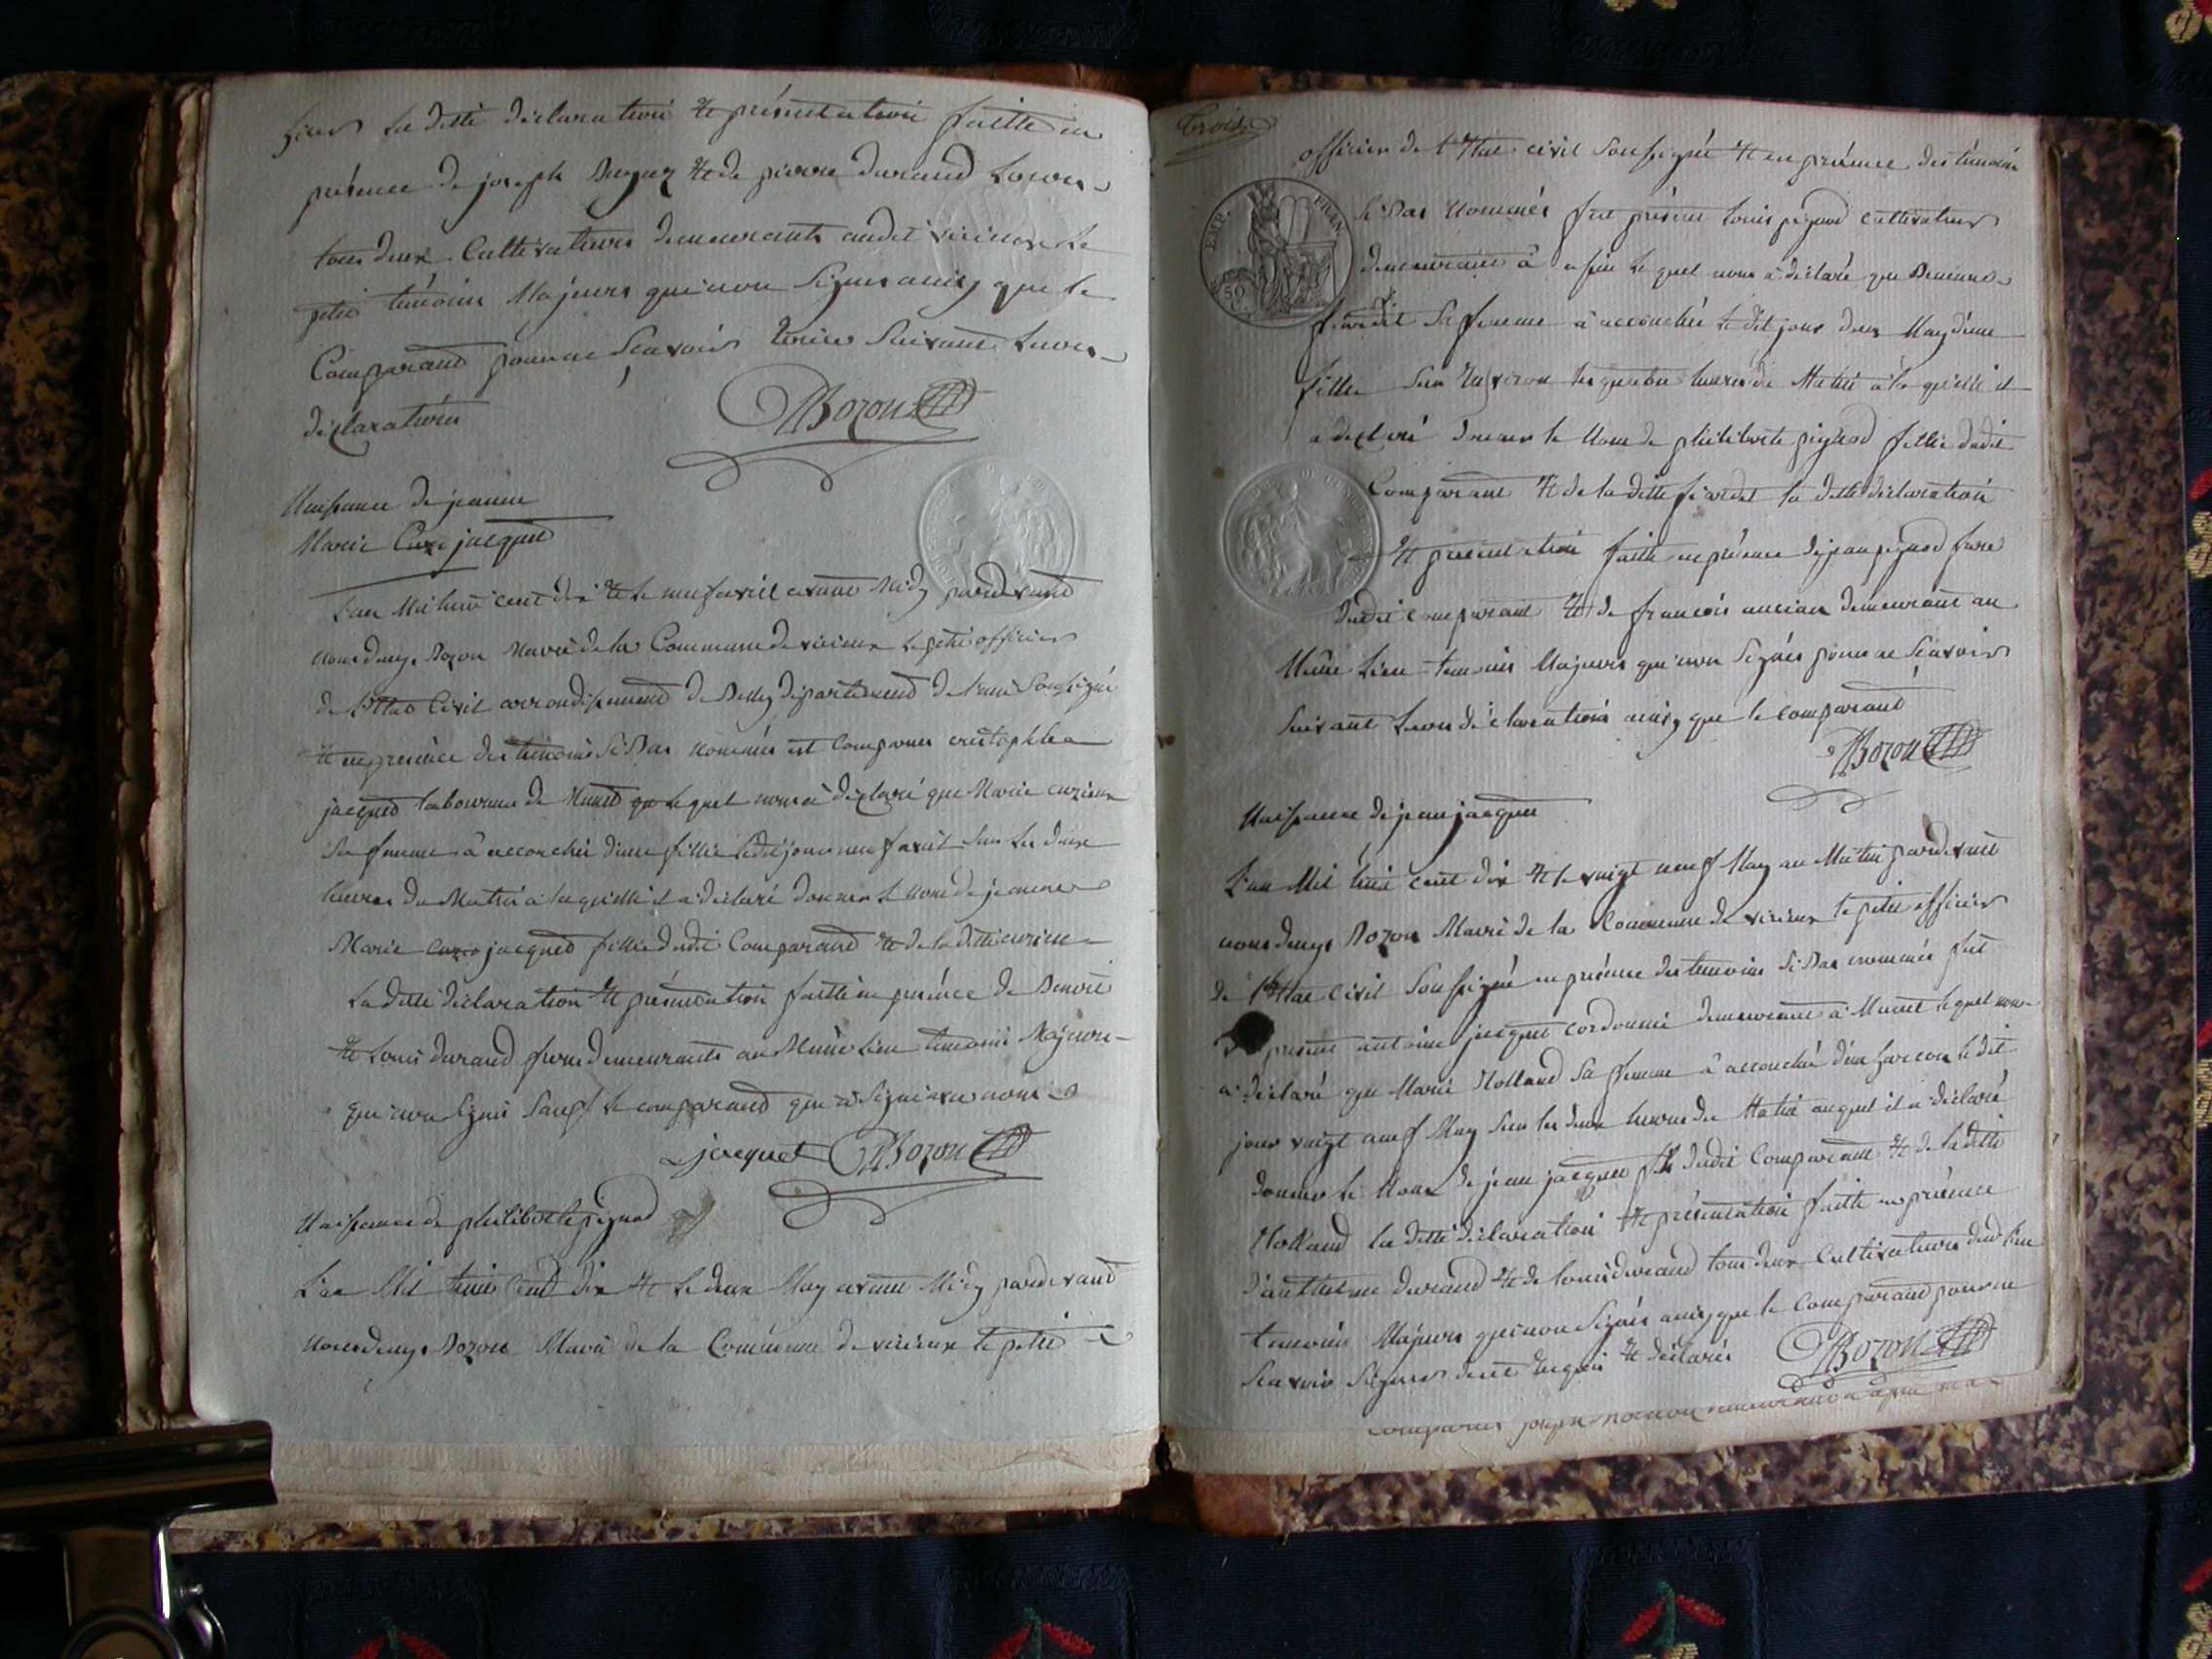 la ditte déclaration et présentation faitte en
présence de joseph et de pierre durand
tous deux Cultivateurs demeurants audit virieux le
petit témoins Majeurs qui non Signés ainsy que le
Comparand pour ne Scavoir Suivant leurs
déclarations
DBozon
Naissance de jeanne
Marie jacquet
L'an Mil huit cent dix et le neuf avril avant Midy pardevand
nous denys Bozon Maire de la Commune de virieux le petit officier
de l'Etat Civil arrondissement de Belley département de l'ain Soussigné
et en presence des témoins Si Bas nommés est Comparu cristophle
jacquet laboureur de Munet lequel nous a déclaré que Marie cuzieux
Sa femme a accouchée d'une fille ledit jour neuf avril Sur les deux
heures du Matin a laquelle il a déclaré donner le nom de jeanne
Marie jacquet fille dudit Comparand et de la ditte cuzieux
La ditte déclaration et présentation faitte en présence de Benoit
et Louis durand frere demeurants au Même Lieu temoins Majeurs
qui non Signés Sauf le comparand qui a Signé avec nous
jacquet DBozon
Naissance de philiberte pignod
L'an Mil huit Cent dix et le deux May avant Midy pardevand
nous denys Bozon Maire de la Commune de virieux le petit
Trois
officier de l'Etat civil Soussigné et en présence des témoins
EMP. FRAN.
50 C.
Si Bas Nommés fut présent louis pignod cultivateur
demeurant à lequel nous a déclaré que
Sa femme a accouchée le dit jour deux May d'une
fille Sur Environ les heures de Matin à laquelle il
a déclaré donner le Nom de philiberte pignod fille dudit
Comparant et de la ditte la ditte déclaration
et présentation faitte en présence de jean pignod frere
dudit comparant et de francois ancian demeurant au
Même Lieu temoins Majeurs qui non Signés pour ne Scavoir
Suivant Leurs déclarations ainsy que le comparand
DBozon
Naissance de jean jacquet
L'an Mil huit cent dix et le vingt neuf May au Matin pardevant
nous denys Bozon Maire de la Commune de virieux le petit officier
de l'Etat civil Soussigné en présence des temoins Si Bas nommés fut
présent antoine jacquet cordonnié demeurant à Munet lequel nous
a déclaré que Marie Holland Sa femme a accouchée d'un garcon le dit
jour vingt neuf May Sur les deux heures du Matin auquel il a déclaré
donner le Nom de jean jacquet fils dudit Comparant et de la ditte
Holland la ditte déclaration et présentation faitte en présence
d'anthelme durand et de louis durand tous deux Cultivateurs dud lieu
temoins Majeurs qui non Signés ainsy que le Comparand pour ne
Scavoir Signer de ce Enquis et déclarés DBozon